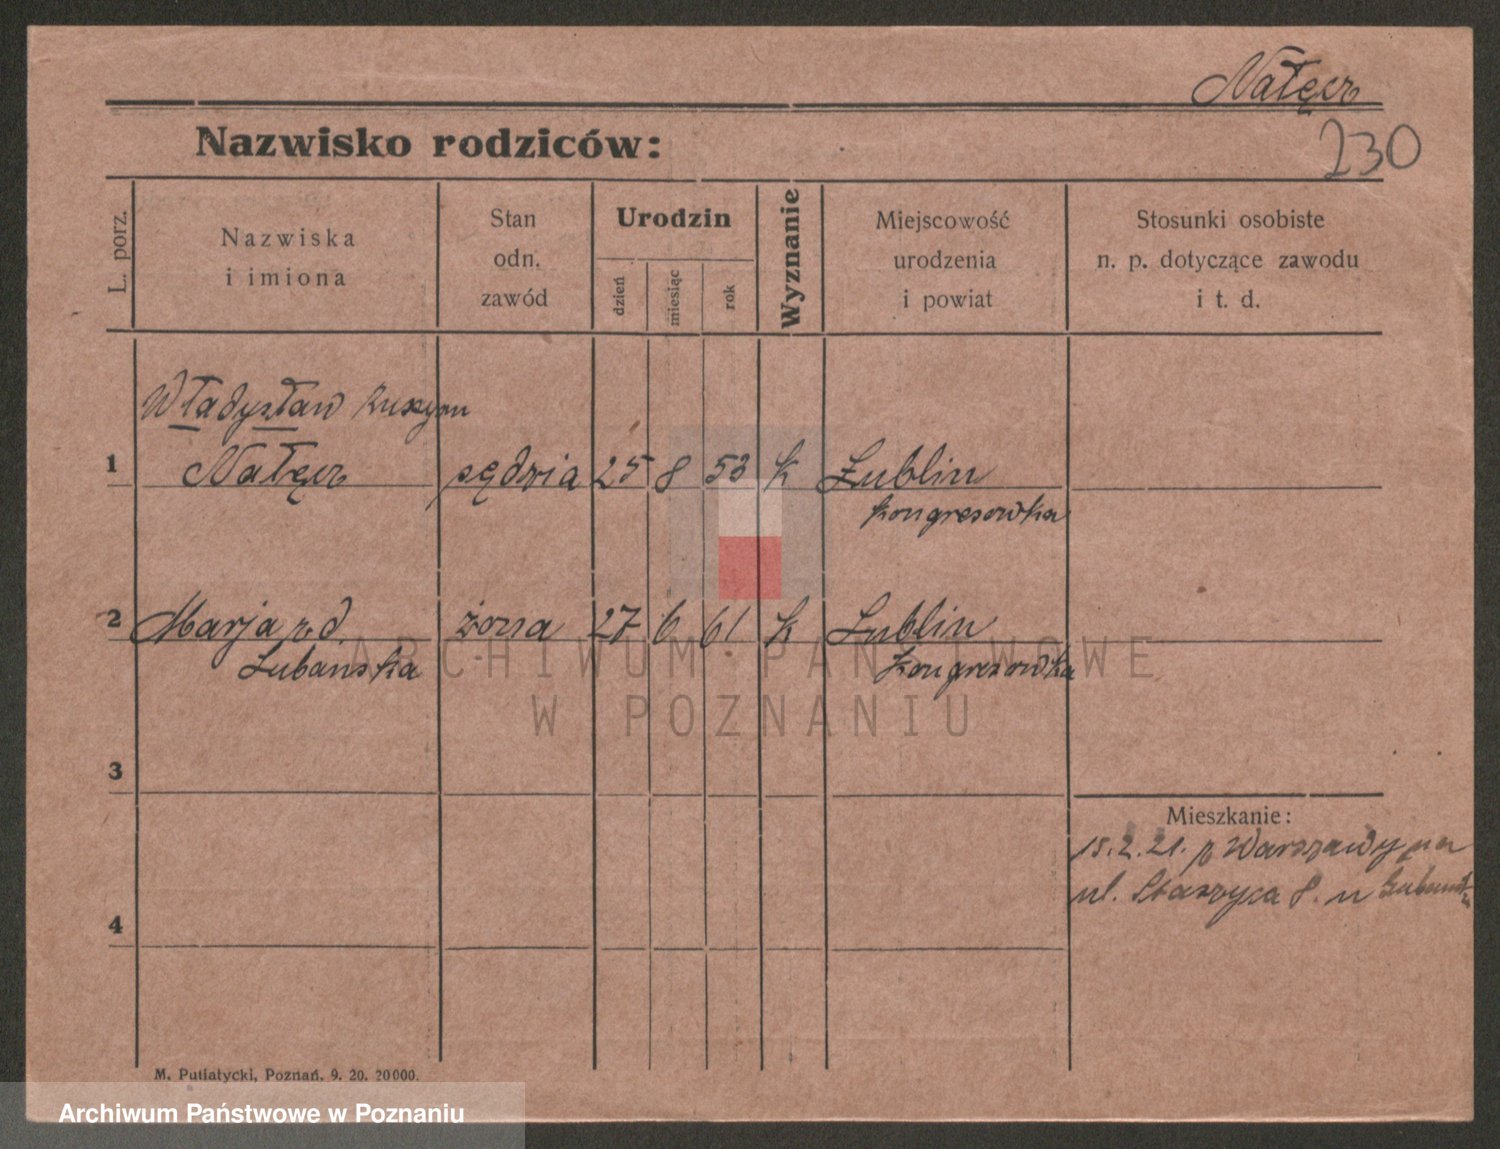 Nałęcz
230
Nazwisko rodziców:
L. porz.
Nazwiska
i imiona
Stan
odn.
zawód
Urodzin
dzień
miesiąc
rok
Wyznanie
Miejscowość
urodzenia
i powiat
Stosunki osobiste
n. p. dotyczące zawodu
i t. d.
Władysław
1 Nałęcz sędzia 25 8 53 k Lublin
Kongresowka
2 Marja zd. żona 27 6 61 k Lublin
Lubańska Kongresowka
3
Mieszkanie:
15.2.21. z Warszawy na
ul. Staszyca 8. u
4
M. Putiatycki, Poznań. 9. 20. 20000.
ARCHIWUM PAŃSTWOWE
W POZNANIU
Archiwum Państwowe w Poznaniu